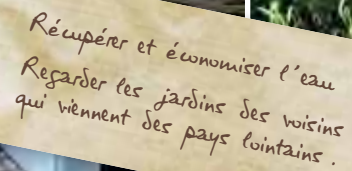 Récupérer et économiser l'eau
Regarder les jardins des voisins
qui viennent des pays lointains.